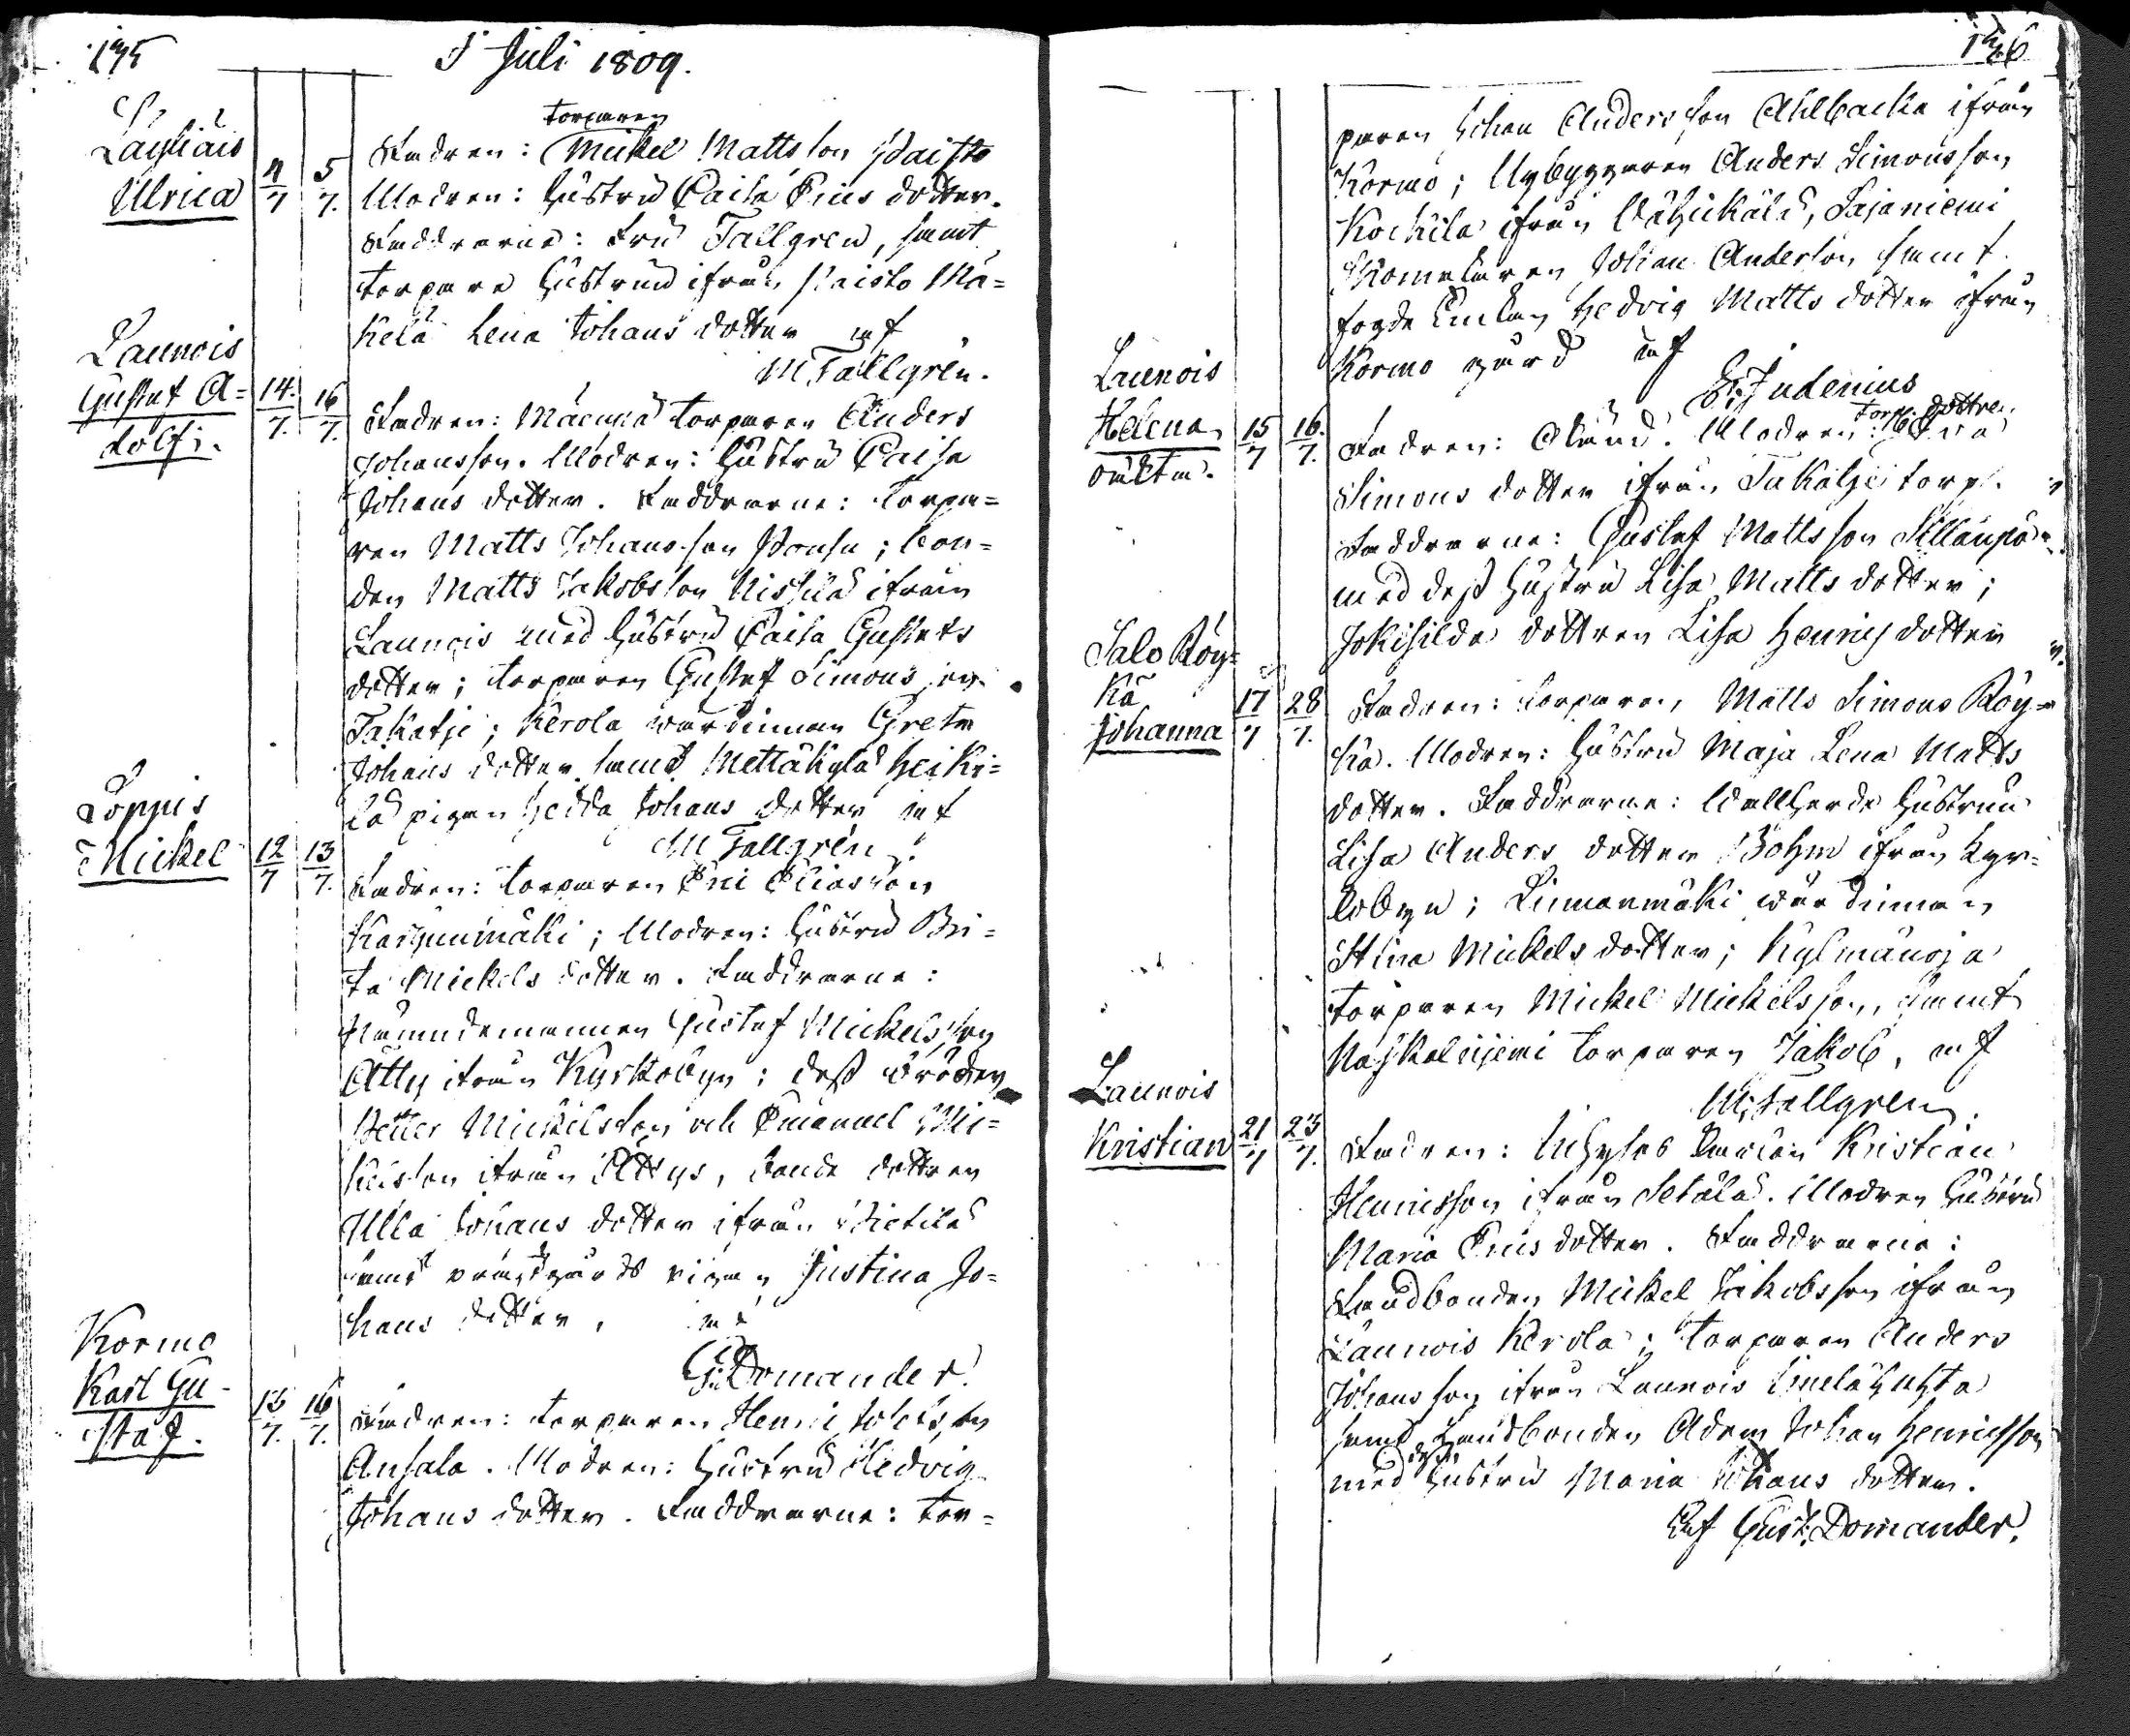 175
I Juli 1809.
Läyliäis
Ulrica
4/7 5/7.
torparen
Fadren: Mickel Mattsson Paisto
Modren: Hustru Caisa Erics dotter.
Faddrarne: Fru Tallgren, samt
torpare Hustrun ifrån Paisto Mä=
kelä Lena Johans dotter af
M. Tallgrén.
Launois
Gustaf A=
dolf.
14/7. 16/7.
Fadren: torparen Anders
Johansson. Modren: Hustru Caisa
Johans dotter. Faddrarne: torpa=
ren Matts Johansson; bon=
den Matts Jakobsson Nissilä ifrån
Launois med Hustru Caisa Gustafs
dotter; torparen Gustaf Simonsson
Takatje; Kerola wärdinnan Greta
Johans dotter samt Mettäkylä Heiki=
lä pigan Hedda Johans dotter af
M Tallgrén.
Loppis
Mickel
12/7 13/7.
Fadren: torparen Eric Eliasson
Karjunmäki; Modren: Hustru Bri=
ta Mickels dotter. Faddrarne:
Nämndemannen Gustaf Mickelsson
Ätty ifrån Kyrkobyn; dess bröder
Petter Mickelsson och Emanuel Mic=
kelsson ifrån Ättys, bonde dottren
Ulla Johans dotter ifrån Pietilä
samt prästgårds pigan Justina Jo=
hans dotter, af
G. Domander.
Kormo
Karl Gu-
staf.
15/7. 16/7.
Fadren: torparen Henric
Ansala. Modren: Hustru Hedvig
Johans dotter. Faddrarne: tor=
176
paren Johan Andersson Ahlbacka ifrån
Kormo; Nybyggaren Anders Simonsson
Kockila ifrån, Sajaniemi
Skomakaren Johan Andersson samt
fogde Enkan Hedvig Matts dotter ifrån
Kormo gård af
E. Judenius
Launois
Helena
oäkta.
15/7 16/7.
Fadren: Okänd. Modren: torp. dottren
Simons dotter ifrån Takatje torp.
Faddrarne: Gustaf Mattsson Sillanpä
med dess Hustru Lisa Matts dotter;
Jokisilda dottren Lisa Henrics dotter
Salo Röy=
kä
Johanna
17/7 28/7.
Fadren: torparen Matts Simons Röy=
kä. Modren: Hustru Maja Lena Matts
dotter. Faddrarne: Wallherde Hustrun
Lisa Anders dotter Böhm ifrån Kyr=
kobyn; Linnanmäki wärdinnan
Stina Mickels dotter; Kylmänoja
torparen Mickel Mickelsson, samt
Kaskelniemi torparen Jakob, af
M. Tallgren.
Launois
Kristian
21/7 23/7.
Fadren: Inhyses Kristian
Henricsson ifrån Setälä. Modren Hustru
Maria Erics dotter. Faddrarne:
Landbonden Mickel Jakobsson ifrån
Launois Kerola; torparen Anders
Johansson ifrån Launois
samt Landbonden Adam Johan Henricsson
med dess Hustru Maria Johans dotter.
af Gust. Domander.